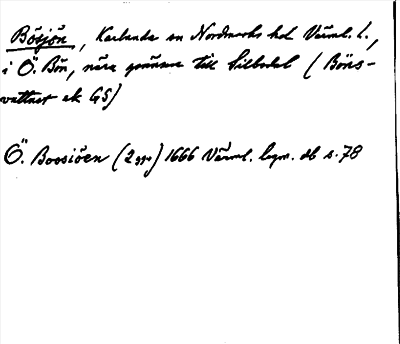 Bösjön, Karlanda sn Nordmarks hd Värml. l.,
i Ö. Bön, nära gränsen till Silbodal (Böns-
vattnet ek GS)
Ö. Boosiöen (2 ggr) 1666 Värml. lagm. db s. 78